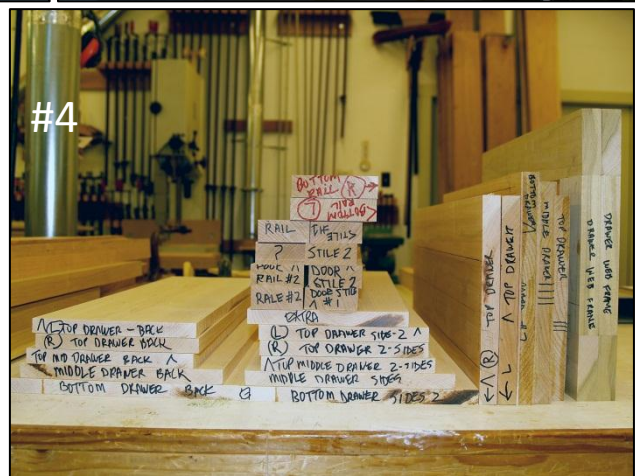 #4
BOTTOM
RAIL (R) →
(L) BOTTOM
RAIL
RAIL
STILE
?
STILE 2
DOOR ^
RAIL #2
DOOR ^
STILE 2
RALE #2
DOOR STILE
^ #1
EXTRA
^ (L) TOP DRAWER - BACK
(R) TOP DRAWER BACK
TOP MID DRAWER BACK ^
MIDDLE DRAWER BACK
BOTTOM DRAWER BACK
(L) TOP DRAWER SIDE-2 ^
(R) TOP DRAWER 2-SIDES
^ TOP MIDDLE DRAWER 2-SIDES
MIDDLE DRAWER SIDES
BOTTOM DRAWER SIDES 2
← ^ (R) TOP DRAWER
← L ^ TOP DRAWER
BOTTOM DRAWER
MIDDLE DRAWER
TOP DRAWER
DRAWER WEB FRAME
DRAWER WEB FRAME